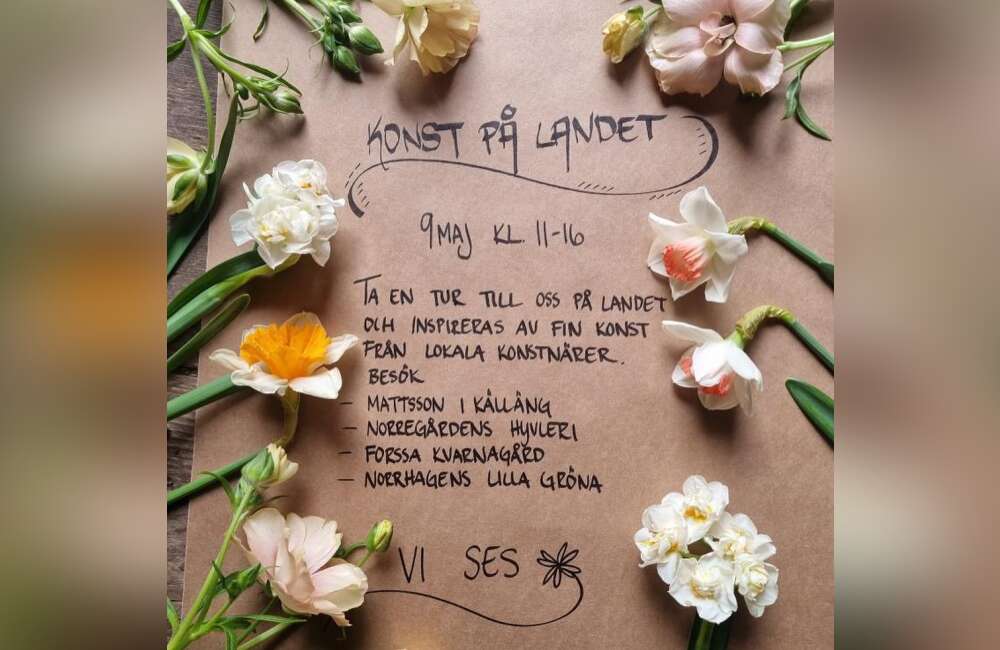 KONST PÅ LANDET
9 MAJ KL. 11-16
TA EN TUR TILL OSS PÅ LANDET
OCH INSPIRERAS AV FIN KONST
FRÅN LOKALA KONSTNÄRER.
BESÖK
- MATTSSON I KÅLLÄNG
- NORREGÅRDENS HYVLERI
- FORSSA KVARNAGÅRD
- NORRHAGENS LILLA GRÖNA
VI SES